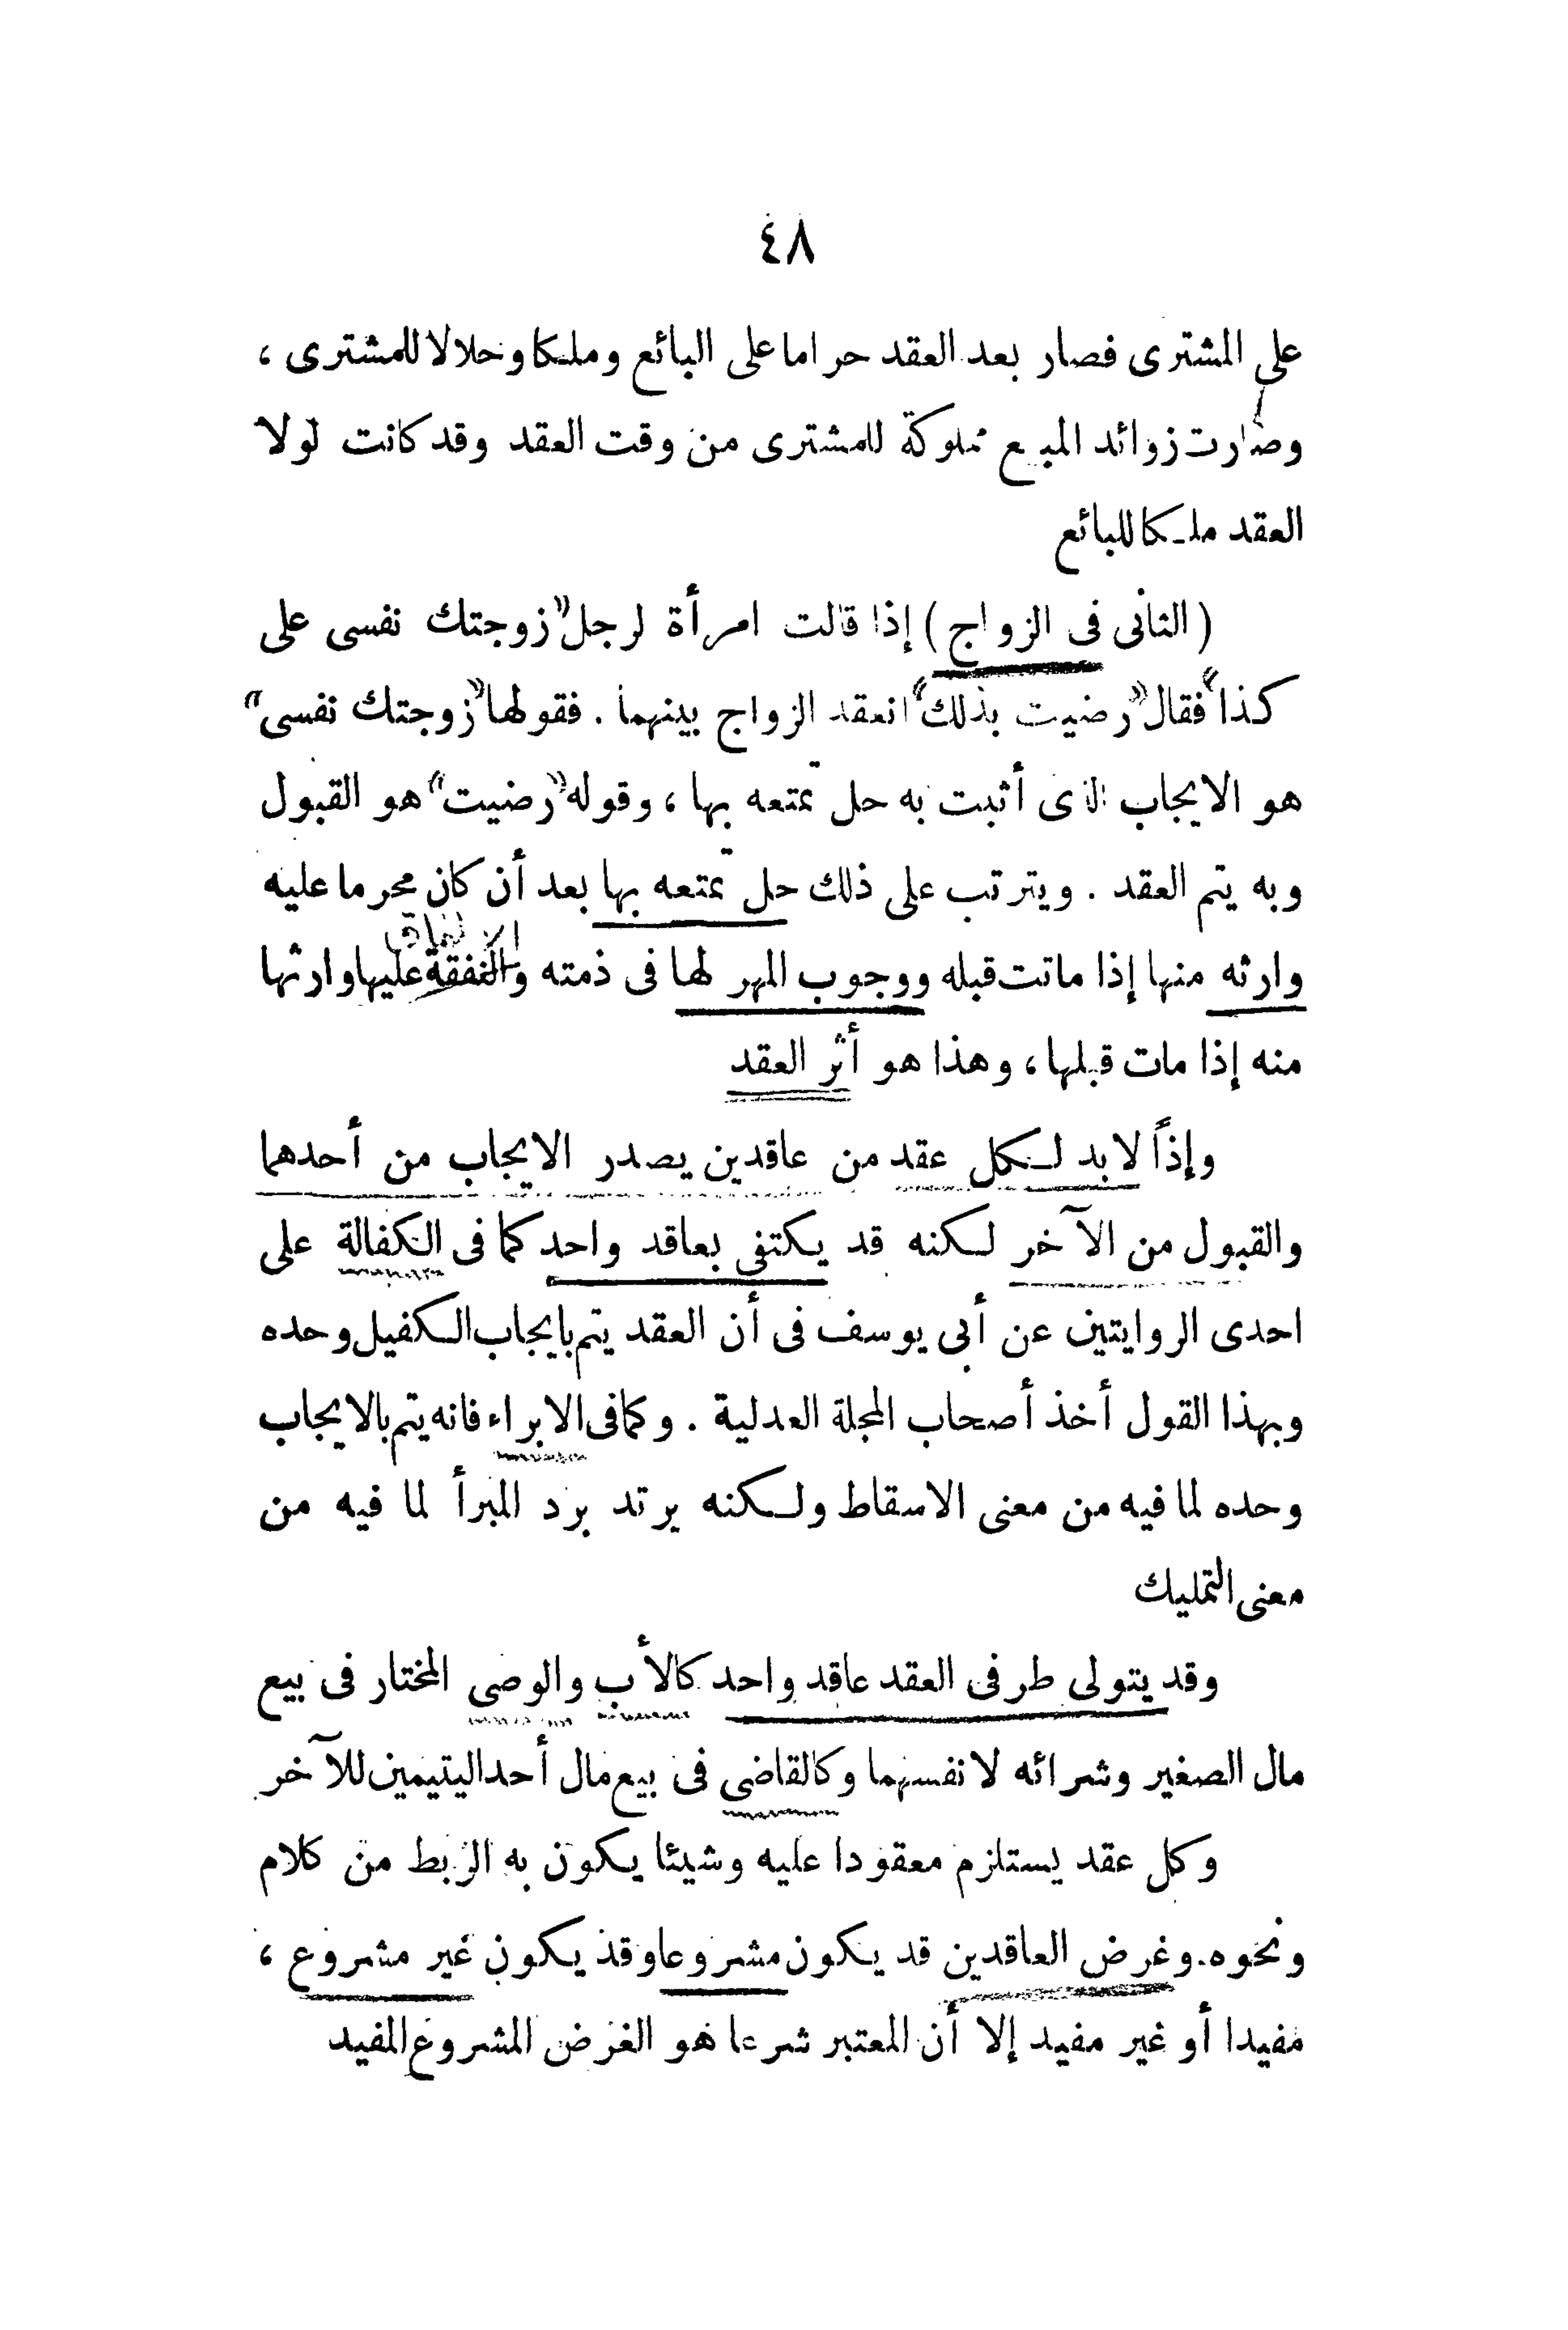 ٤٨
على المشترى فصار بعد العقد حراما على البائع وملكا وحلالا للمشترى ،
وصارت زوائد المبيع مملوكة للمشترى من وقت العقد وقد كانت لولا
العقد ملكا للبائع
( الثانى فى الزواج ) إذا قالت امرأة لرجل «زوجتك نفسى على
كذا» فقال «رضيت بذلك» انعقد الزواج بينهما . فقولها «زوجتك نفسى»
هو الايجاب الذى أثبت به حل تمتعه بها ، وقوله «رضيت» هو القبول
وبه يتم العقد . ويترتب على ذلك حل تمتعه بها بعد أن كان محرما عليه
الانفاق
وارثه منها إذا ماتت قبله ووجوب المهر لها فى ذمته والنفقة عليها وارثها
منه إذا مات قبلها ، وهذا هو أثر العقد
وإذاً لابد لكل عقد من عاقدين يصدر الايجاب من أحدهما
والقبول من الآخر لكنه قد يكتفى بعاقد واحد كما فى الكفالة على
احدى الروايتين عن أبى يوسف فى أن العقد يتم بايجاب الكفيل وحده
وبهذا القول أخذ أصحاب المجلة العدلية . وكما فى الابراء فانه يتم بالايجاب
وحده لما فيه من معنى الاسقاط ولكنه يرتد برد المبرأ لما فيه من
معنى التمليك
وقد يتولى طرفى العقد عاقد واحد كالأب والوصى المختار فى بيع
مال الصغير وشرائه لانفسهما وكالقاضى فى بيع مال أحد اليتيمين للآخر
وكل عقد يستلزم معقودا عليه وشيئا يكون به الربط من كلام
ونحوه. وغرض العاقدين قد يكون مشروعا وقد يكون غير مشروع ،
مفيدا أو غير مفيد إلا أن المعتبر شرعا هو الغرض المشروع المفيد